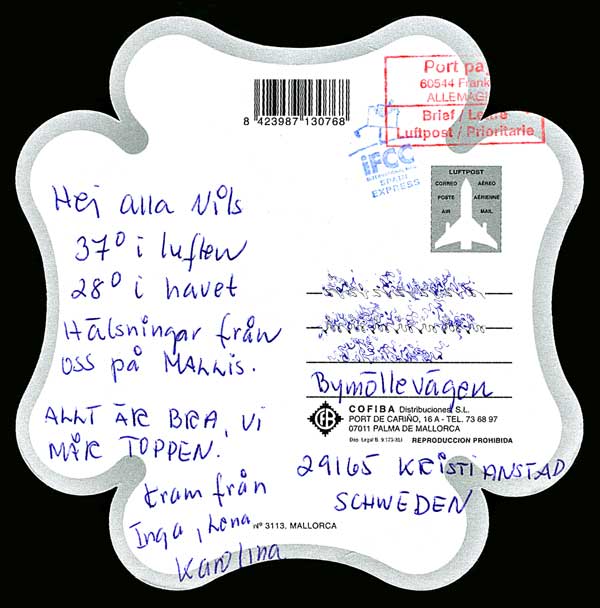 8 423987 130768
Port pa
60544 Frank
ALLEMAG
Brief / Lettre
Luftpost / Prioritarie
iFCC
SPAIN
EXPRESS
LUFTPOST
CORREO AÉREO
POSTE AÉRIENNE
AIR MAIL
Hej alla Nils
37° i luften
28° i havet
Hälsningar från
oss på MALLIS.
ALLT ÄR BRA, VI
MÅR TOPPEN.
kram från
Inga, Lena
Karolina
Bymöllevägen
COFIBA Distribuciones S.L.
PORT DE CARIÑO, 16 A - TEL. 73 68 97
07011 PALMA DE MALLORCA
Dep. Legal B. REPRODUCCION PROHIBIDA
29165 KRISTIANSTAD
SCHWEDEN
Nº 3113, MALLORCA